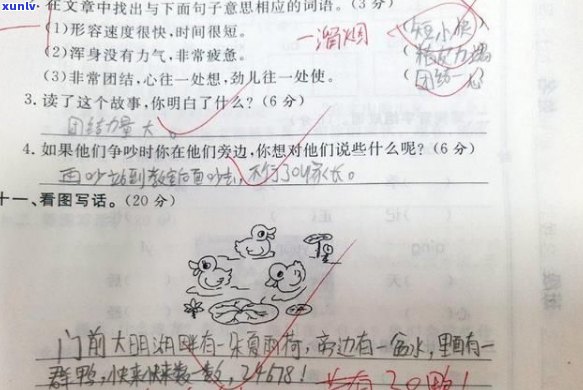 xunlv
在文章中找出与下面句子意思相应的词语。(3分)
(1)形容速度很快,时间很短。
一溜烟
(短小快
(2)浑身没有力气,非常疲惫。
(精疲力竭
(3)非常团结,心往一处想,劲儿往一处使。
(团结一心
3. 读了这个故事,你明白了什么?(6分)
团结力量大。
4. 如果他们争吵时你在他们旁边,你想对他们说些什么呢?(6分)
再吵站到教室后面吵去,不行了叫家长。
十一、看图写话。(20分)
门前大明湖畔有一朵夏雨荷,旁边有一盆水,里面有一
群鸭,快来快来数一数,24678!